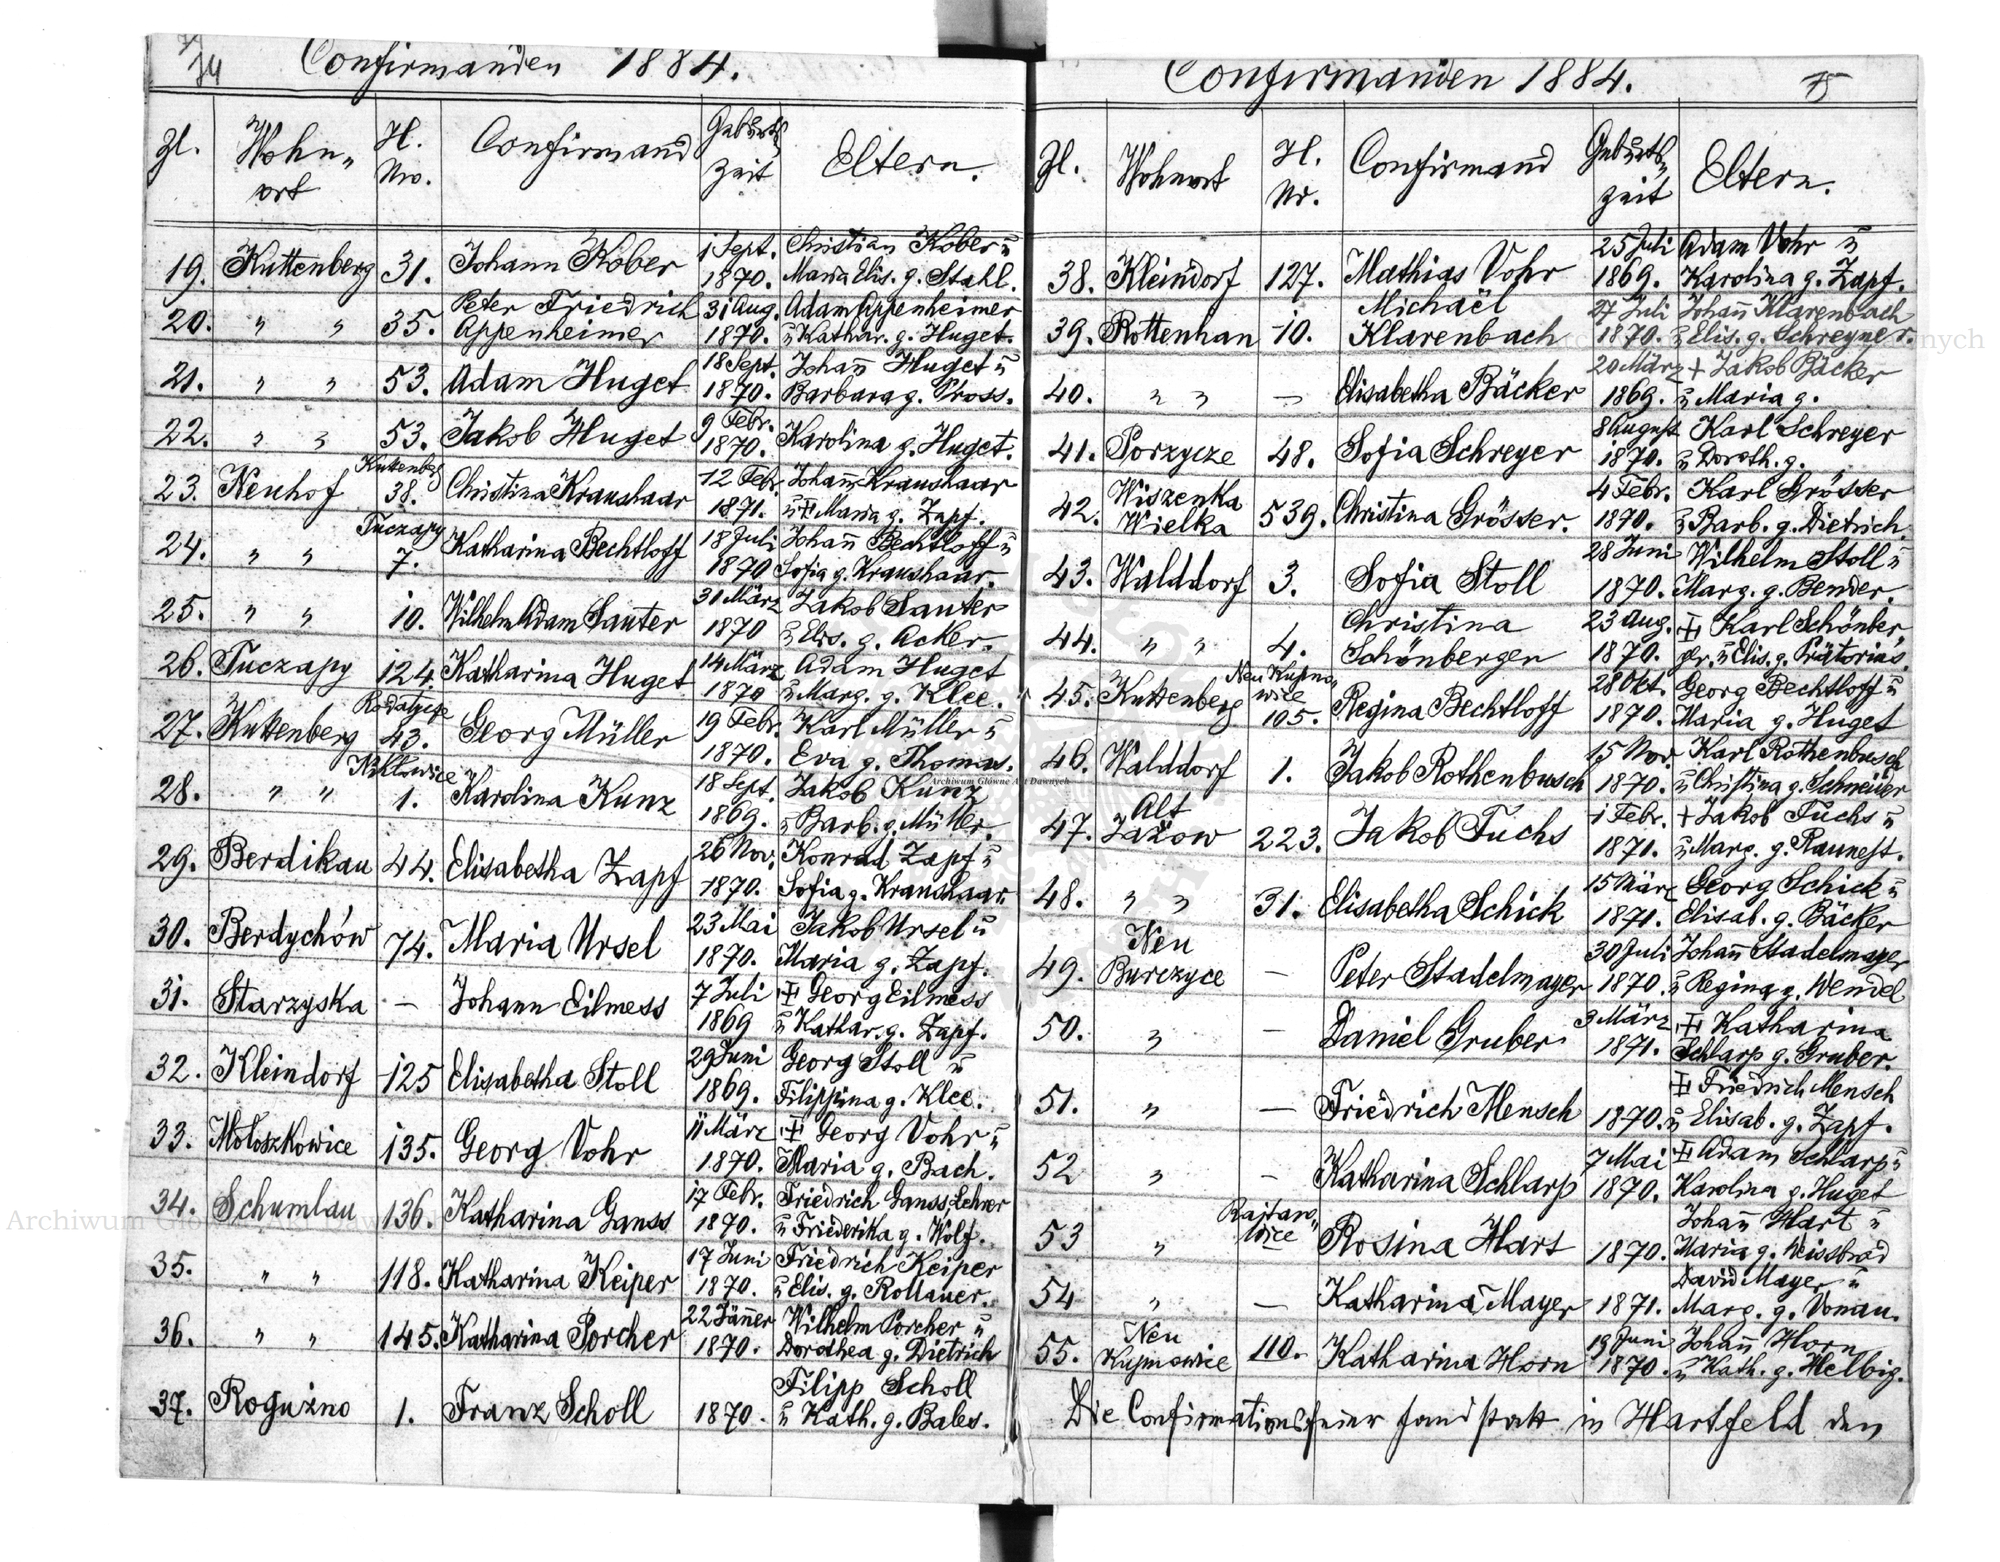 74
Confirmanden 1884.
Zl. Wohn- ort H. No. Confirmand Geburts zeit Eltern.
19. Kuttenberg 31. Johann Kober 1 Sept. 1870. Christian Kober u Maria Elis. g. Stahl.
20. " " 35. Peter Friedrich Appenheimer 31 Aug. 1870. Adam Appenheimer u Kathar. g. Huget.
21. " " 53. Adam Huget 18 Sept. 1870. Johann Huget u Barbara g. Pross.
22. " " 53. Jakob Huget 9 Febr. 1870. Karolina g. Huget.
23. Neuhof 38. Christina Kraushaar 12 Febr. 1871. Johann Kraushaar u ‡ Maria g. Zapf.
24. " " Tuczapy 7. Katharina Bechtloff 18 Juli 1870 Johann Bechtloff u Sofia g. Kraushaar.
25. " " 10. Wilhelm Adam Sauter 31 März 1870 Jakob Sauter u Elis. g. Acker.
26. Tuczapy 124 Katharina Huget 14 März 1870 Adam Huget u Marg. g. Klee.
27. Kuttenberg Rodatycze 43. Georg Müller 19 Febr. 1870. Karl Müller u Eva g. Thomas.
28. " " Niklowice 1. Karolina Kunz 18 Sept. 1869. Jakob Kunz u Barb. g. Müller.
29. Berdikau 44. Elisabetha Zapf 26 Nov. 1870. Konrad Zapf u Sofia g. Kraushaar
30. Berdychów 74. Maria Ursel 23 Mai 1870. Jakob Ursel u Maria g. Zapf.
31. Starzyska — Johann Eilmess 7 Juli 1869 ‡ Georg Eilmess u Kathar. g. Zapf.
32. Kleindorf 125 Elisabetha Stoll 29 Juni 1869. Georg Stoll u Filippina g. Klee.
33. Mołoszkowice 135. Georg Vohr 11 März 1870. ‡ Georg Vohr u Maria g. Bach.
34. Schumlau 136. Katharina Ganss 17 Febr. 1870. Friedrich Ganss, Lehrer u Friederika g. Wolf.
35. " " 118. Katharina Keiper 17 Juni 1870. Friedrich Keiper u Elis. g. Rollauer.
36. " " 145. Katharina Porcher 22 Jänner 1870. Wilhelm Porcher u Dorothea g. Dietrich
37. Roguźno 1. Franz Scholl 1870. Filipp Scholl u Kath. g. Bales.
Confirmanden 1884.
75
Zl. Wohnort H. Nr. Confirmand Geburts- zeit Eltern.
38. Kleindorf 127. Mathias Vohr 25 Juli 1869. Adam Vohr u Karolina g. Zapf.
39. Rottenhan 10. Michaël Klarenbach 27 Juli 1870. Johann Klarenbach u Elis. g. Schreyner.
40. " " — Elisabetha Bäcker 20 März 1869. + Jakob Bäcker u Maria g.
41. Porzycze 48. Sofia Schreyer 8 August 1870. Karl Schreyer u Doroth. g.
42. Wiszenka Wielka 539. Christina Grösser. 4 Febr. 1870. Karl Grösser u Barb. g. Dietrich.
43. Walddorf 3. Sofia Stoll 28 Juni 1870. Wilhelm Stoll u Marg. g. Bender.
44. " " 4. Christina Schönberger 23 Aug. 1870. ‡ Karl Schönber- ger. u Elis. g. Prätorius.
45. Kuttenberg Neu Kupno- wice 105. Regina Bechtloff 28 Okt. 1870. Georg Bechtloff u Maria g. Huget
46. Walddorf 1. Jakob Rothenbusch 15 Nov. 1870. Karl Rothenbusch u Christina g. Schneider
47. Alt Jazow 223. Jakob Fuchs 1 Febr. 1871. + Jakob Fuchs u u Marg. g.
48. " " 31. Elisabetha Schick 15 März 1871. Georg Schick u Elisab. g. Bäcker
49. Neu Burczyce — Peter Stadelmayer 30 Juli 1870. Johann Stadelmayer u Regina g. Wendel
50. " — Daniel Gruber 3 März 1871. ‡ Katharina Schlarp g. Gruber.
51. " — Friedrich Mensch 1870. ‡ Friedrich Mensch u Elisab. g. Zapf.
52 " — Katharina Schlarp 7 Mai 1870. ‡ Adam Schlarp u Karolina g. Huget
53 " Rajtaro- wice Rosina Hart 1870. Johann Hart u Maria g. Weissbrod
54 " — Katharina Mayer 1871. David Mayer u Marg. g. Vonau.
55. Neu Kupnowice 110. Katharina Horn 19 Juni 1870. Johann Horn u Kath. g. Helbig.
Die Confirmationsfeier fand statt in Hartfeld den
Archiwum Główne Akt Dawnych